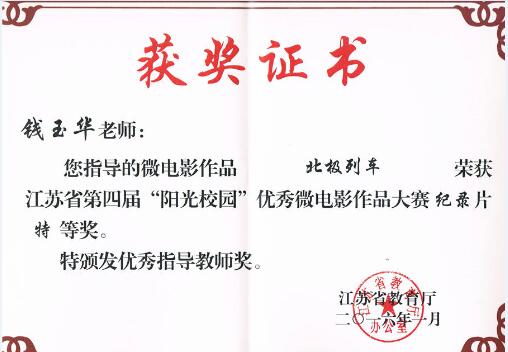 获奖证书
钱玉华老师：
您指导的微电影作品 北极列车 荣获
江苏省第四届“阳光校园”优秀微电影作品大赛纪录片
特 等奖。
特颁发优秀指导教师奖。
江苏省教育厅
二〇一六年一月
江苏省教育厅
办公室